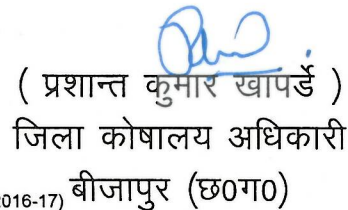 ( प्रशान्त कुमार खापर्डे )
जिला कोषालय अधिकारी
2016-17) बीजापुर (छ0ग0)